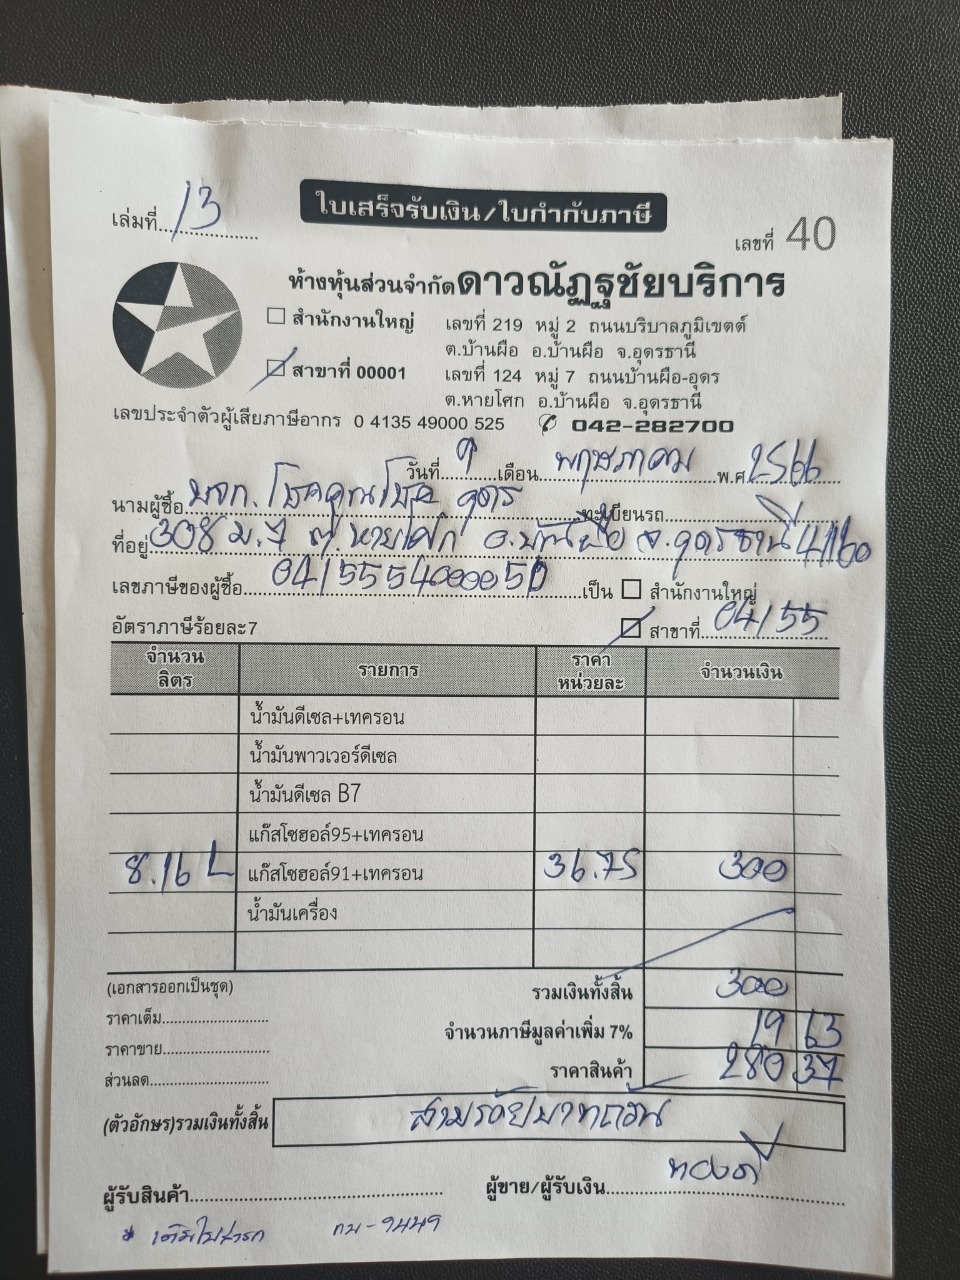 ใบเสร็จรับเงิน/ใบกำกับภาษี
เล่มที่ 13
เลขที่ 40
ห้างหุ้นส่วนจำกัดดาวณัฏฐชัยบริการ
สำนักงานใหญ่ เลขที่ 219 หมู่ 2 ถนนบริบาลภูมิเขตต์
ต.บ้านผือ อ.บ้านผือ จ.อุดรธานี
สาขาที่ 00001 เลขที่ 124 หมู่ 7 ถนนบ้านผือ-อุดร
ต.หายโศก อ.บ้านผือ จ.อุดรธานี
เลขประจำตัวผู้เสียภาษีอากร 0 4135 49000 525 042-282700
วันที่ 9 เดือน พฤษภาคม พ.ศ. 2566
นามผู้ซื้อ หจก. โชคคูณโชค อุดร ทะเบียนรถ
ที่อยู่ 308 ม.7 ต.หายโศก อ.บ้านผือ จ.อุดรธานี 41160
เลขภาษีของผู้ซื้อ 0415554000050 เป็น สำนักงานใหญ่
อัตราภาษีร้อยละ7 สาขาที่ 04155
จำนวนลิตร รายการ ราคาหน่วยละ จำนวนเงิน
น้ำมันดีเซล+เทครอน
น้ำมันพาวเวอร์ดีเซล
น้ำมันดีเซล B7
แก๊สโซฮอล์95+เทครอน
8.16 L แก๊สโซฮอล์91+เทครอน 36.75 300
น้ำมันเครื่อง
(เอกสารออกเป็นชุด) รวมเงินทั้งสิ้น 300
ราคาเต็ม จำนวนภาษีมูลค่าเพิ่ม 7% 19 63
ราคาขาย ราคาสินค้า 280 37
ส่วนลด
(ตัวอักษร)รวมเงินทั้งสิ้น สามร้อยบาทถ้วน
ผู้รับสินค้า ผู้ขาย/ผู้รับเงิน ทองดี
* กม-9449